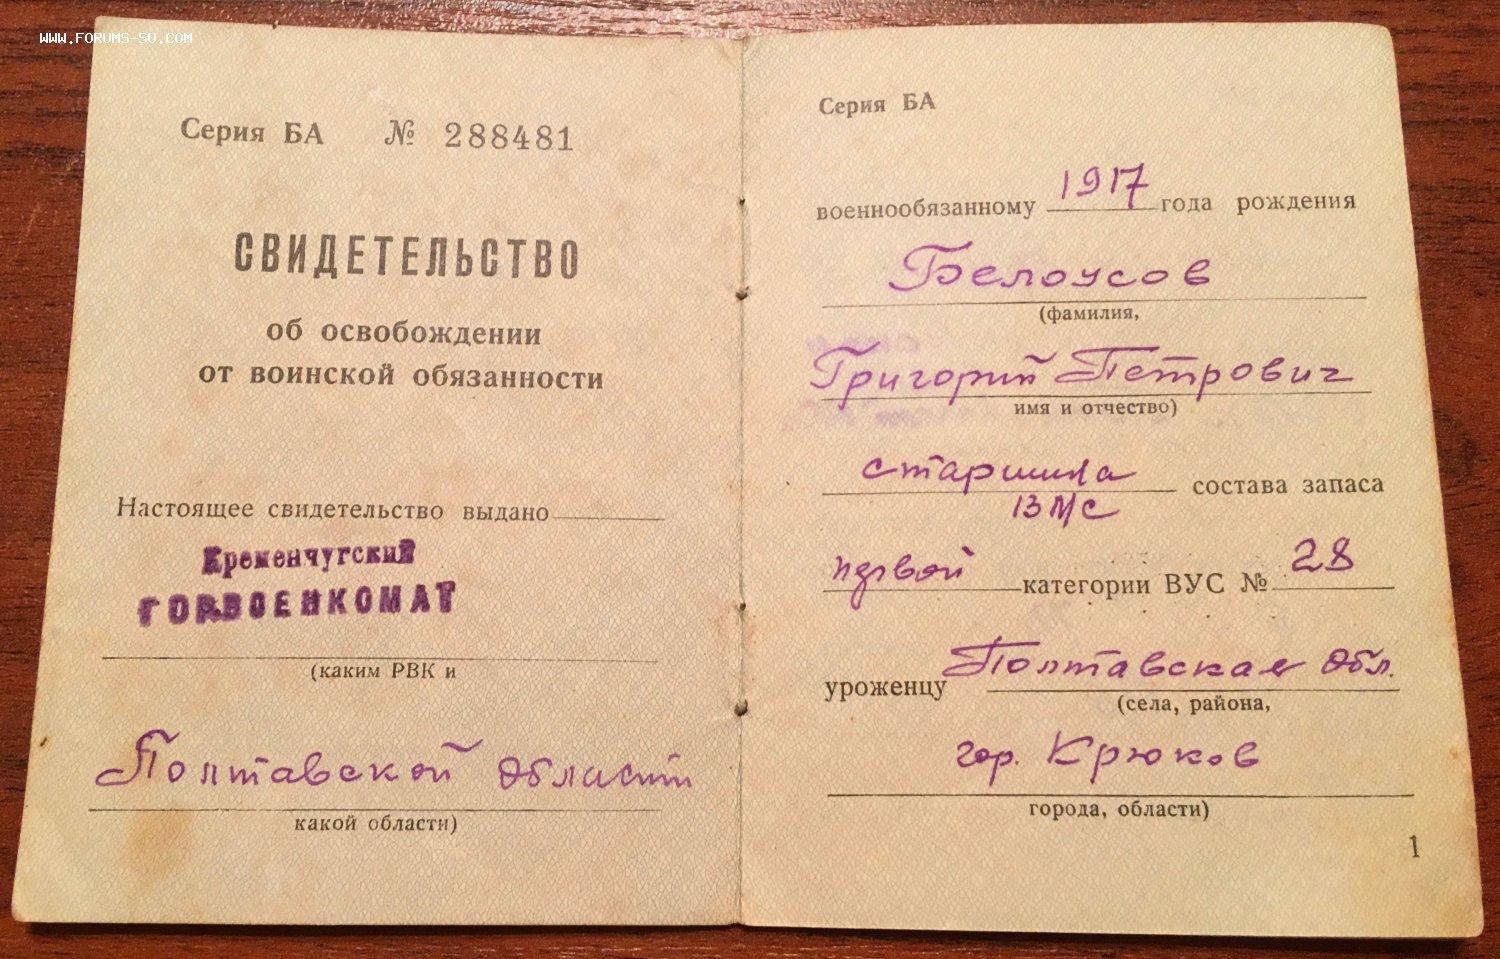 WWW.FORUMS-SU.COM
Серия БА № 288481
СВИДЕТЕЛЬСТВО
об освобождении
от воинской обязанности
Настоящее свидетельство выдано
Кременчугский
ГОРВОЕНКОМАТ
(каким РВК и
Полтавской области
какой области)
Серия БА
военнообязанному 1917 года рождения
Белоусов
(фамилия,
Григорий Петрович
имя и отчество)
старшина состава запаса
ВМС
первой категории ВУС № 28
уроженцу Полтавская обл.
(села, района,
гор. Крюков
города, области)
1